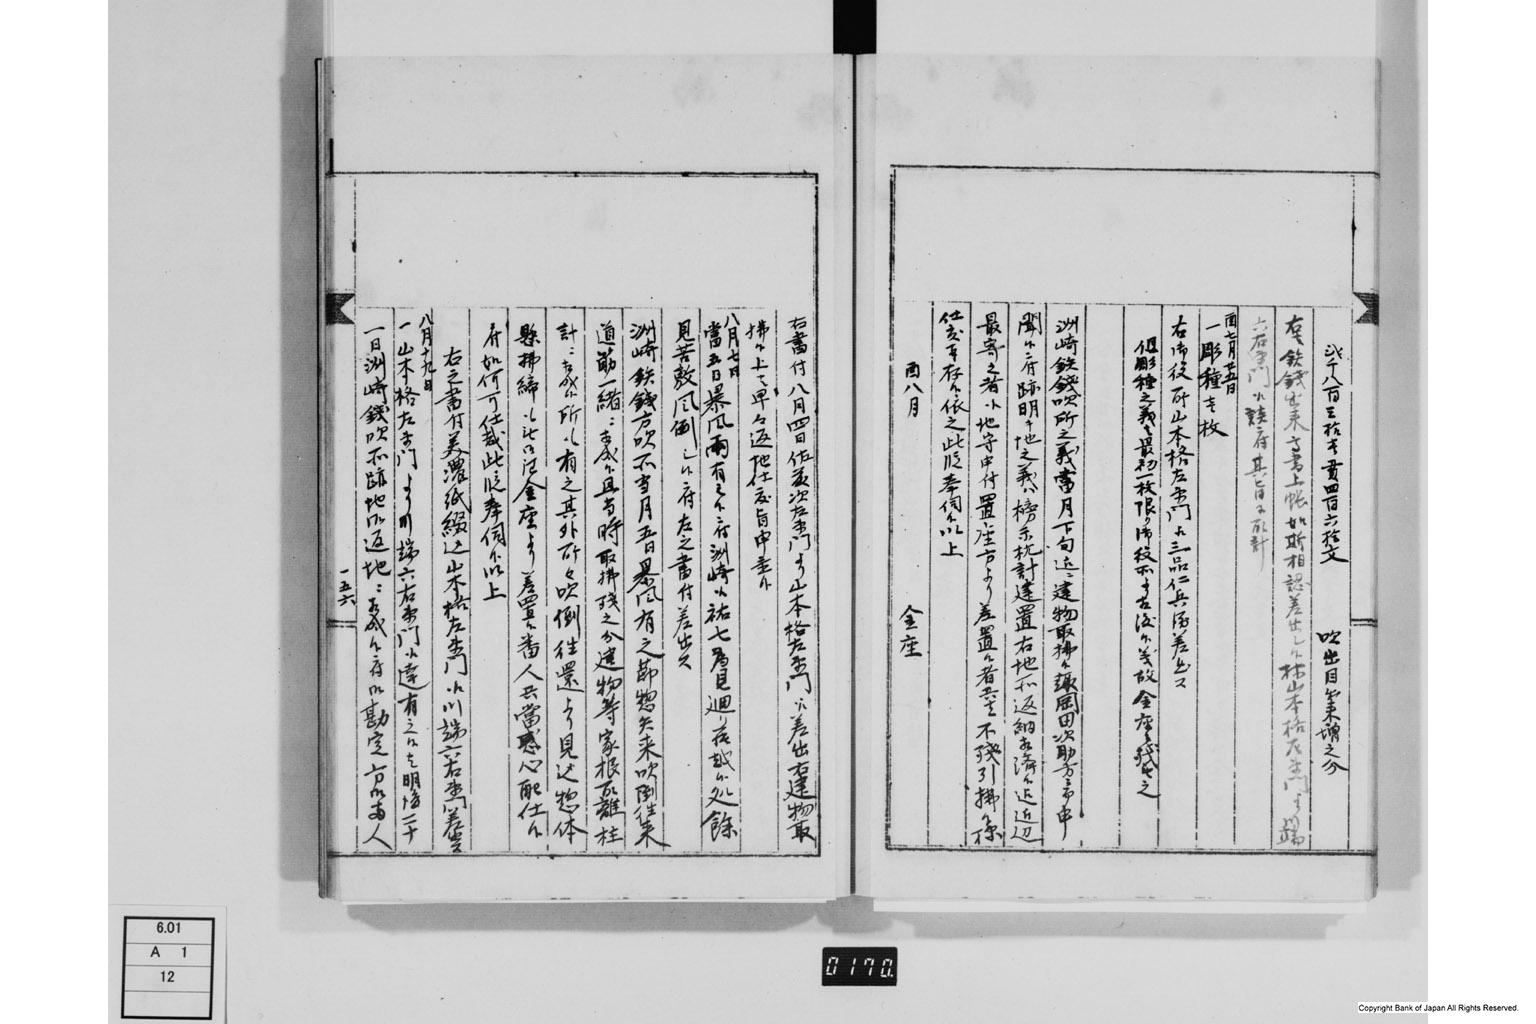 弐千八百三拾壱貫四百六拾文　吹出目出来増之分
右者鉄錢出来高書上帳如斯相認差出し候様山本格左衛門より川端
六右衛門江談候ニ付其旨取計
酉七月廿五日
一彫種壱枚
右御役所山本格左衛門江三品仁兵衛差出ス
但彫種之義者最初一枚限り御役所より古渡候義故金座ニ残無之
洲崎鉄錢吹所之義當月下旬迄ニ建物取拂候議岡田次助方ニ而申
聞候ニ付跡明キ地之義ハ榜示杭計建置右地所返納相済候迄近辺
最寄之者江地守申付置座方より差置候者共者不殘引拂候様
仕度奉存候依之此段奉伺候以上
酉八月　金座
右書付八月四日佐藤次左衛門より山本格左衛門江差出右建物取
拂候上者早々返地仕度旨申立候
八月七日
當五日暴風雨有之候ニ付洲崎江祐七為見廻り罷越候処餘
見苦敷風倒し候ニ付左之書付差出ス
洲崎鉄錢吹所当月五日暴風有之節惣矢来吹倒往来
道筋一緒ニ相成候且当時取拂残之分建物等家根取離柱
計ニ相成候所も有之其外所々吹倒往還より見込惣体
縣拂締も無御座金座より差置候番人共當惑心配仕候
付如何可仕哉此段奉伺候以上
右之書付美濃紙綴込山本格左衛門江川端六右衛門差出
八月十九日
一山本格左衛門より川端六右衛門江達有之候者明後二十
一日洲崎錢吹所跡地御返地ニ相成候ニ付御勘定方御両人
一五六
6.01
A 1
12
0170.
Copyright Bank of Japan All Rights Reserved.